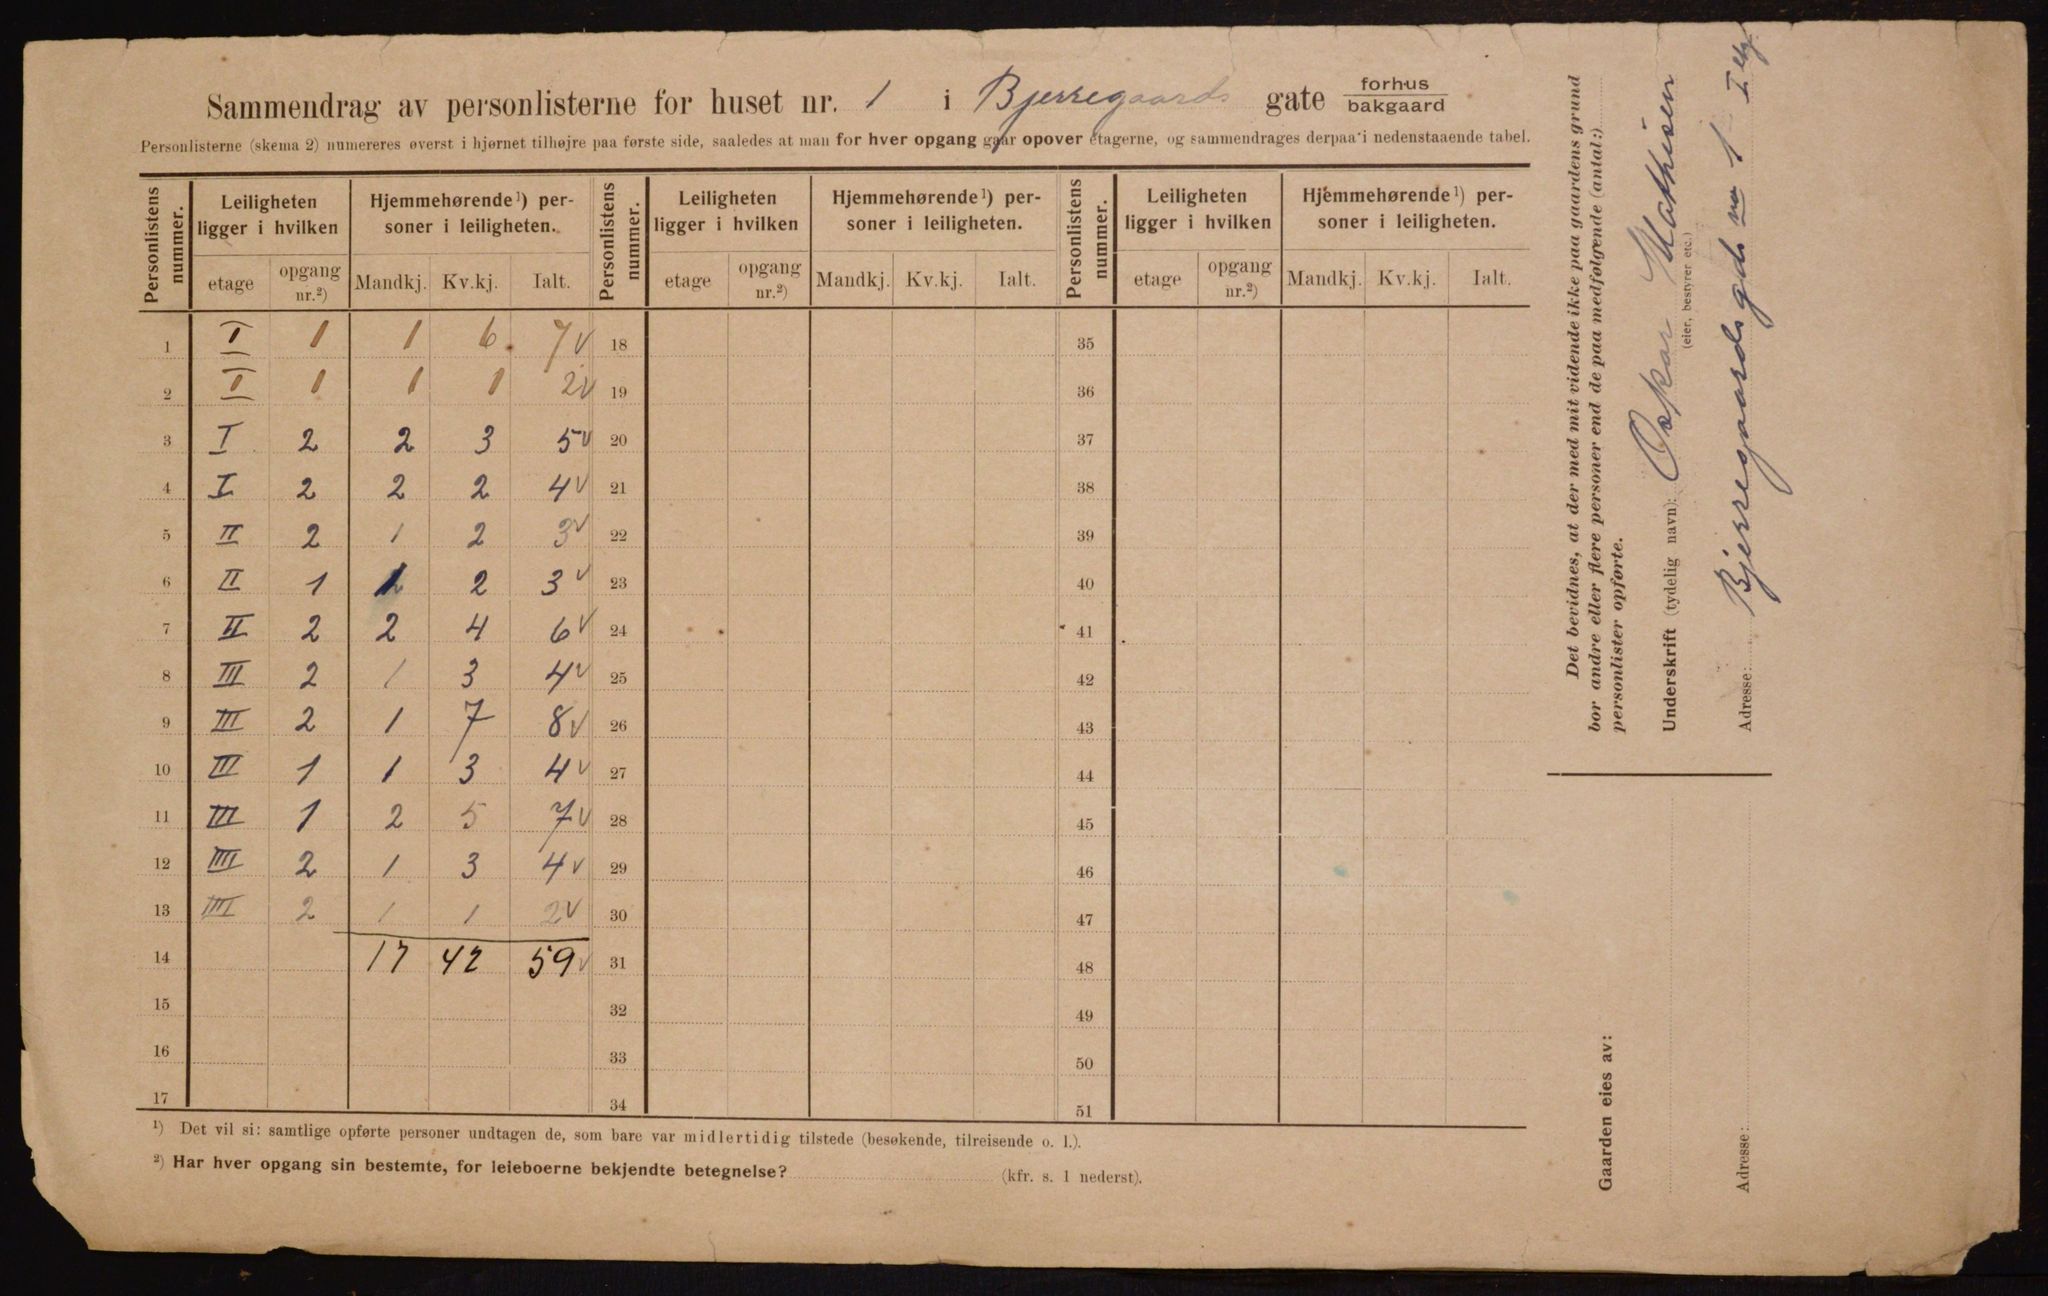 Sammendrag av personlisterne for huset nr. 1 i Bjerregaards gate forhus
bakgaard
Personlisterne (skema 2) numereres øverst i hjørnet tilhøjre paa første side, saaledes at man for hver opgang gaar opover etagerne, og sammendrages derpaa i nedenstaaende tabel.
Personlistens nummer. Leiligheten ligger i hvilken Hjemmehørende¹) personer i leiligheten. Personlistens nummer. Leiligheten ligger i hvilken Hjemmehørende¹) personer i leiligheten. Personlistens nummer. Leiligheten ligger i hvilken Hjemmehørende¹) personer i leiligheten.
etage opgang nr.²) Mandkj. Kv.kj. Ialt. etage opgang nr.²) Mandkj. Kv.kj. Ialt. etage opgang nr.²) Mandkj. Kv.kj. Ialt.
1 I 1 1 6 7 v 18 35
2 I 1 1 1 2 v 19 36
3 I 2 2 3 5 v 20 37
4 I 2 2 2 4 v 21 38
5 II 2 1 2 3 v 22 39
6 II 1 1 2 3 v 23 40
7 II 2 2 4 6 v 24 41
8 III 2 1 3 4 v 25 42
9 III 2 1 7 8 v 26 43
10 III 1 1 3 4 v 27 44
11 III 1 2 5 7 v 28 45
12 IIII 2 1 3 4 v 29 46
13 IIII 2 1 1 2 v 30 47
14 17 42 59 v 31 48
15 32 49
16 33 50
17 34 51
¹) Det vil si: samtlige opførte personer undtagen de, som bare var midlertidig tilstede (besøkende, tilreisende o. l.).
²) Har hver opgang sin bestemte, for leieboerne bekjendte betegnelse? (kfr. s. 1 nederst).
Det bevidnes, at der med mit vidende ikke paa gaardens grund
bor andre eller flere personer end de paa medfølgende (antal:)
personlister opførte.
Underskrift (tydelig navn): Oskar Mathisen
(eier, bestyrer etc.)
Adresse: Bjerregaardsgd no 1 I
Gaarden eies av:
Adresse: